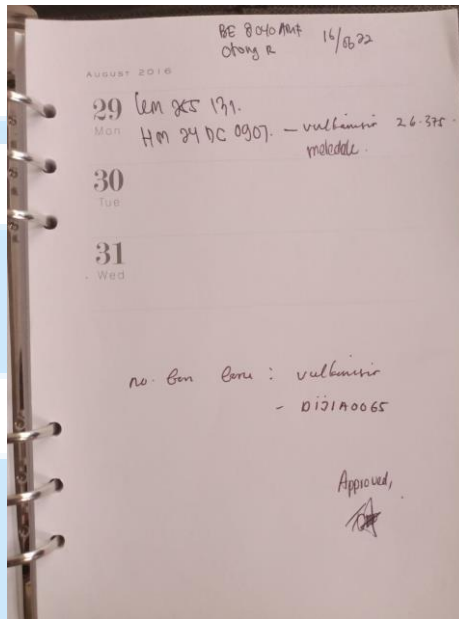 BE 8040 AMF 16/0622
Otong R
AUGUST 2016
29
Mon
HM 24 DC 0907. - vulkanisir 26.375
meledak.
30
Tue
31
Wed
no. ban baru : vulkanisir
- DIJIA0065
Approved,